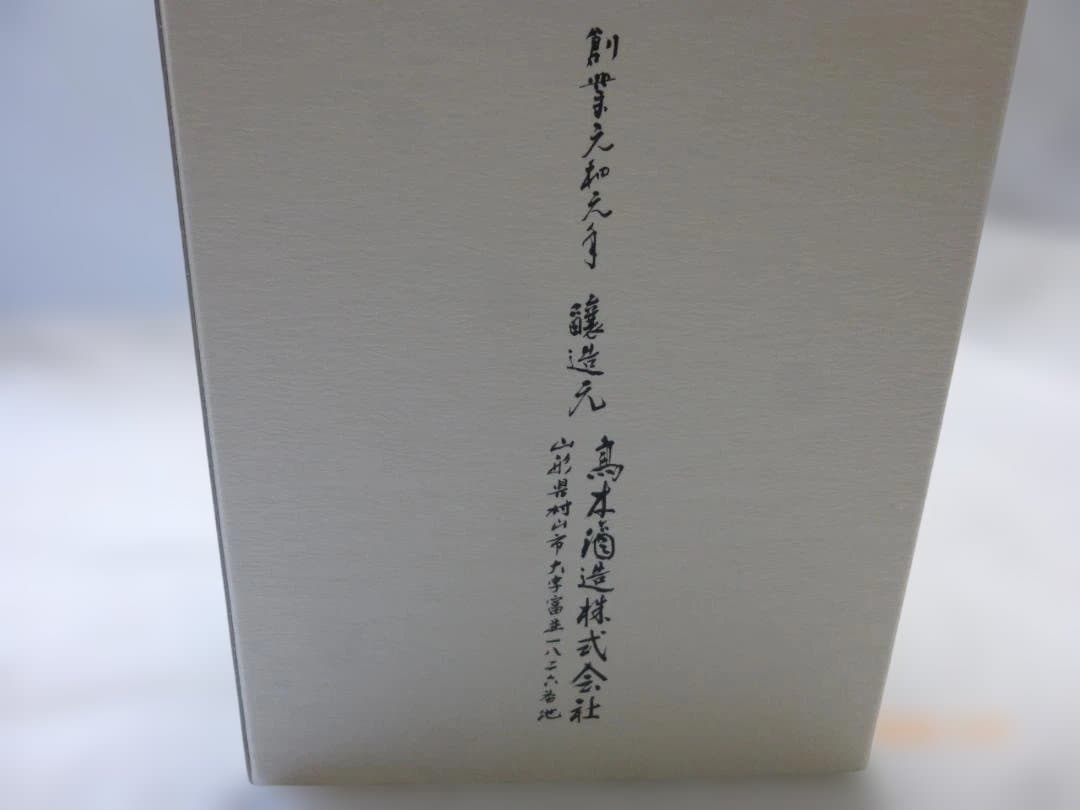 創業元和元年
醸造元
髙木酒造株式会社
山形県村山市大字富並一八二六番地